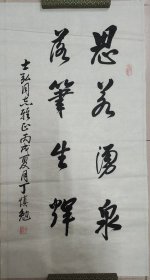 思若湧泉
落筆生輝
士弘同志雅正丙戌夏月丁慎勉